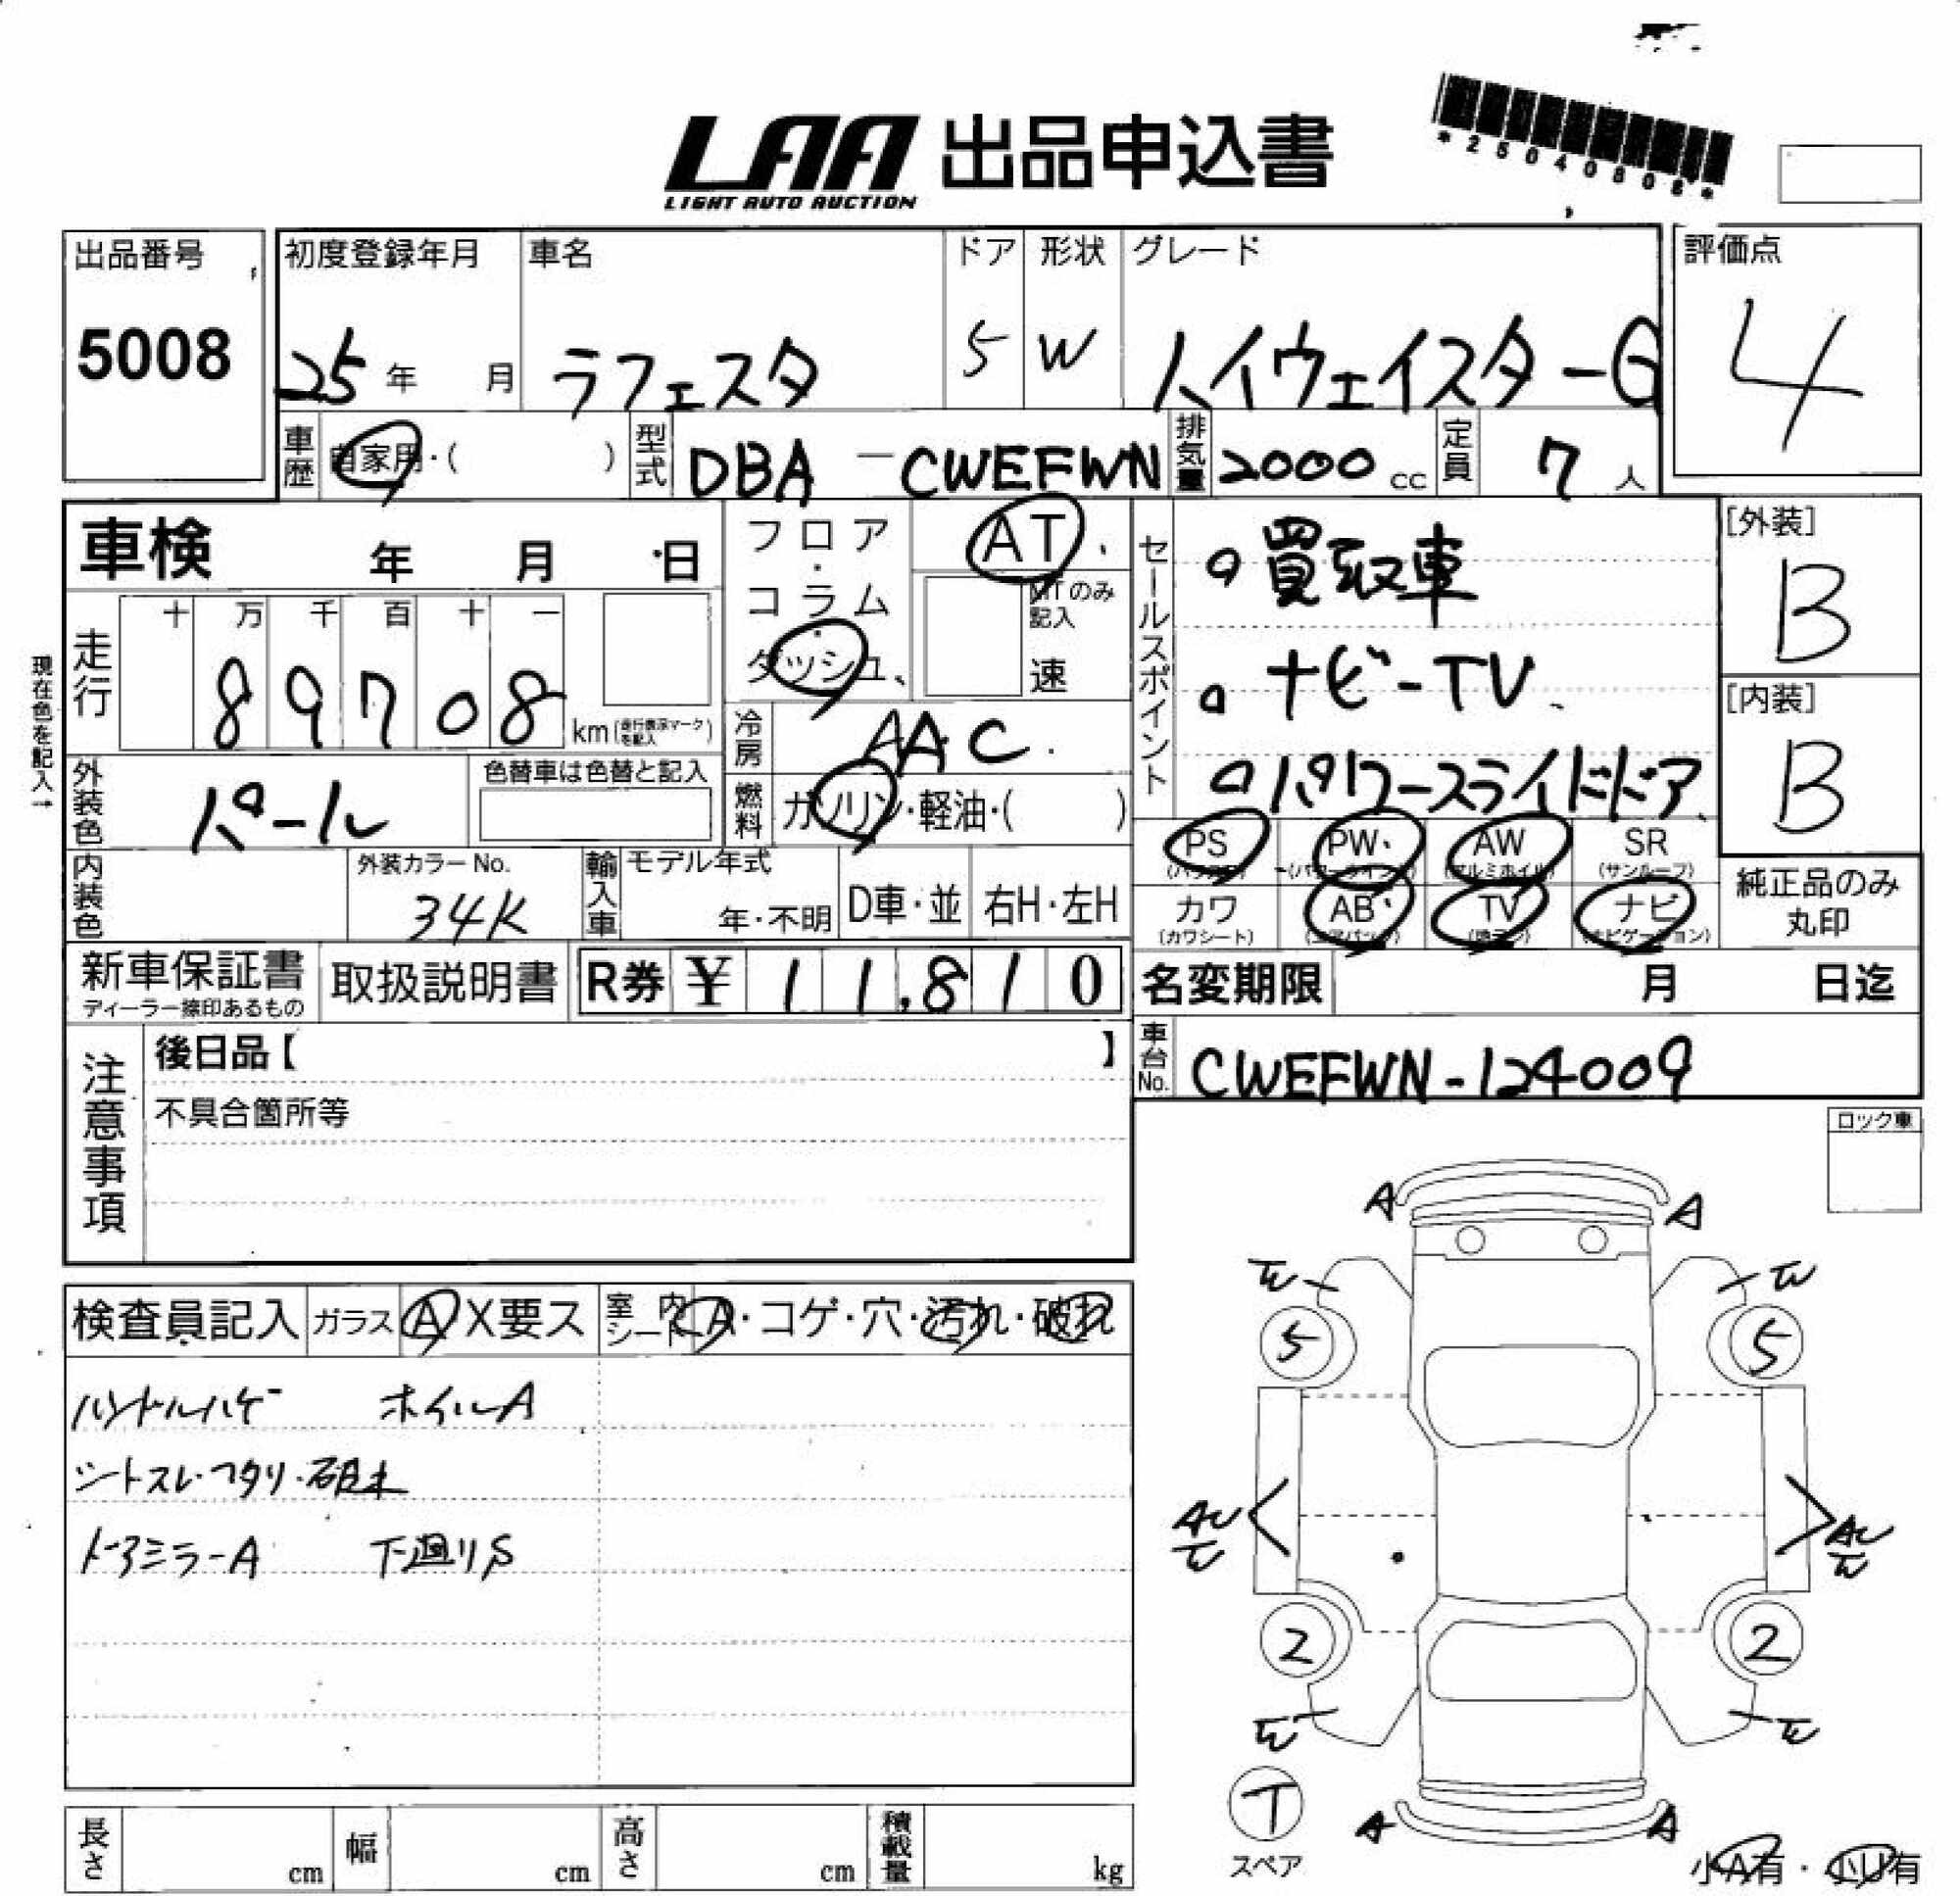 LAA 出品申込書
LIGHT AUTO AUCTION
*25040808*
出品番号
5008
初度登録年月
25年 月
車名
ラフェスタ
ドア
5
形状
W
グレード
ハイウェイスターG
評価点
4
車歴 自家用・( )
型式 DBA-CWEFWN
排気量 2000cc
定員 7人
車検 年 月 日
フロア・コラム・ダッシュ
AT
MTのみ記入
速
セールスポイント
買取車
ナビ-TV
パワースライドドア
[外装]
B
[内装]
B
現在色を記入→
走行
十 万 千 百 十 一
8 9 7 0 8 km (走行表示マークを記入)
冷房 AAC
外装色 パール
色替車は色替と記入
燃料 ガソリン・軽油・( )
PS (パワステ)
PW (パワーウインドウ)
AW (アルミホイル)
SR (サンルーフ)
カワ (カワシート)
AB (エアバッグ)
TV
ナビ (ナビゲーション)
純正品のみ丸印
内装色
外装カラーNo.
34K
輸入車
モデル年式
年・不明
D車・並
右H・左H
新車保証書
ディーラー捺印あるもの
取扱説明書
R券 ¥ 11,810
名変期限 月 日迄
車台No. CWEFWN-124009
注意事項
後日品【 】
不具合箇所等
ロック車
検査員記入
ガラス A X要ス
室内シート A・コゲ・穴・汚れ・破れ
ハンドルハゲ ホイルA
シートスレ・ヘタリ・破れ
ドアミラーA 下廻りS
A A
W W
5 5
AU W
AU W
2 2
W W
T
スペア
A A
小A有・小U有
長さ cm
幅 cm
高さ cm
積載量 kg